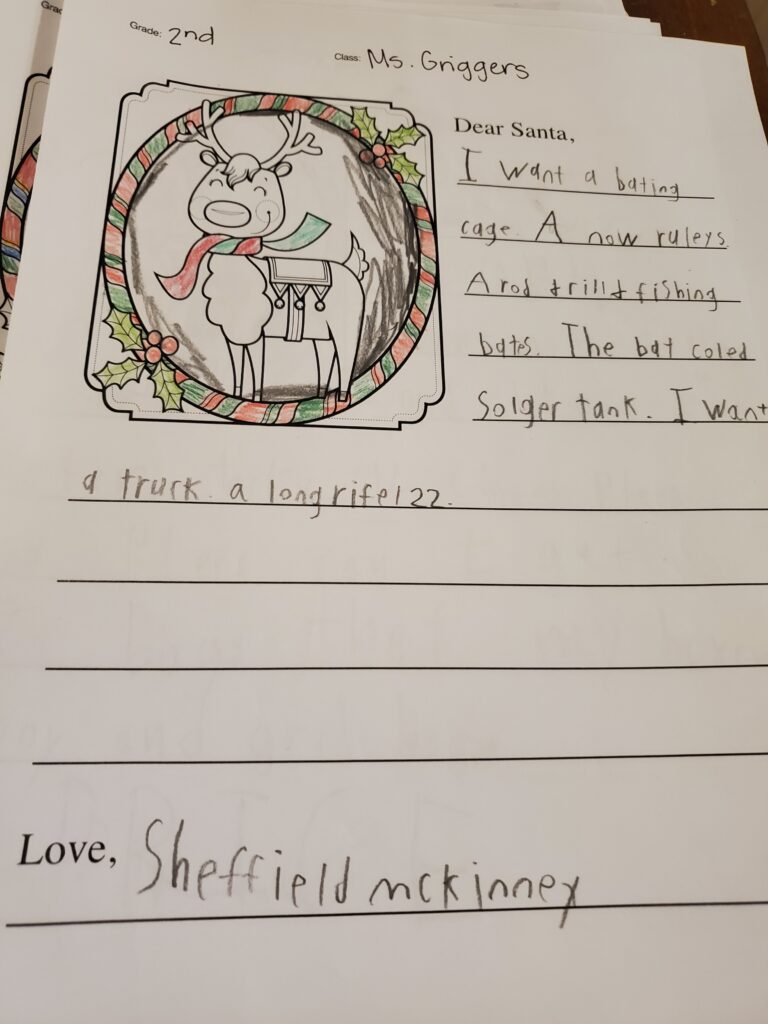 Grade: 2nd
Class: Ms. Griggers
Dear Santa,
I want a bating
cage. A now ruleys
A rod trillt fishing
bates. The bat coled
Solger tank. I want
a truck. a long rifel 22.
Love, Sheffield mckinney